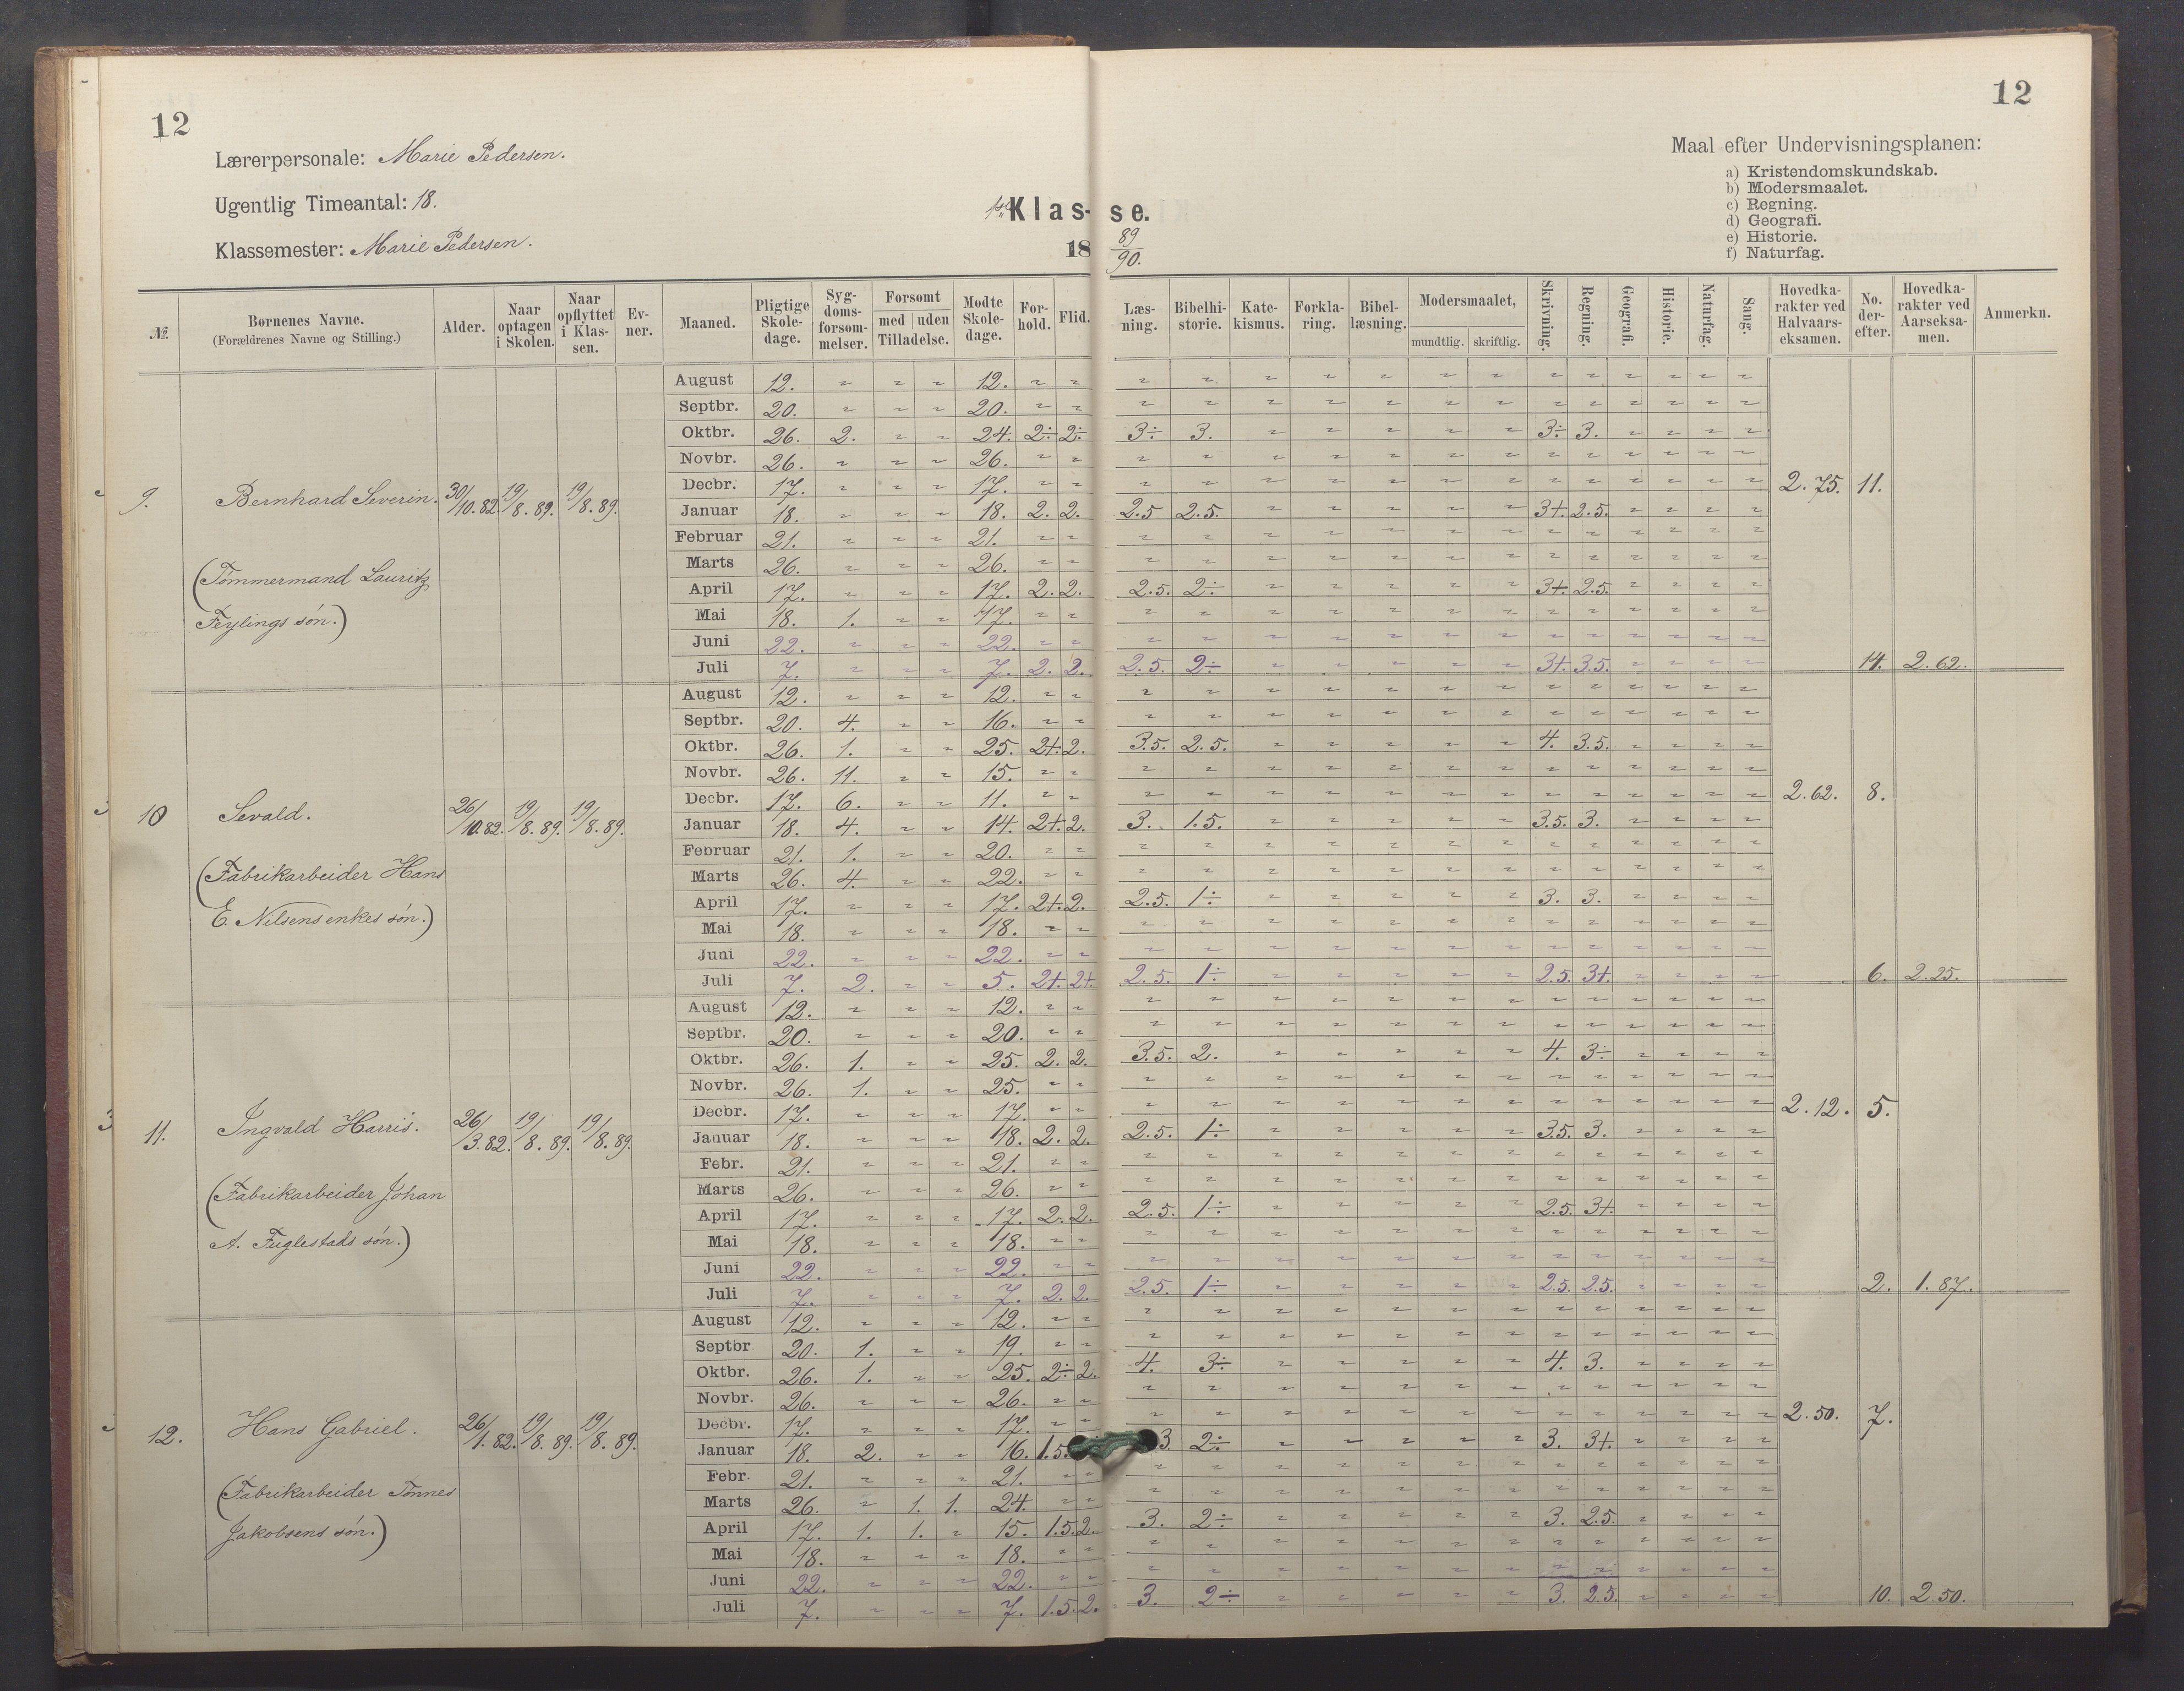 12
12
Lærerpersonale: Marie Pedersen.
Ugentlig Timeantal: 18.
Klassemester: Marie Pedersen.
1ste Klas- se.
18 89/90.
Maal efter Undervisningsplanen:
a) Kristendomskundskab.
b) Modersmaalet.
c) Regning.
d) Geografi.
e) Historie.
f) Naturfag.
№ Børnenes Navne. (Forældrenes Navne og Stilling.) Alder. Naar optagen i Skolen. Naar opflyttet i Klassen. Evner. Maaned. Pligtige Skoledage. Sygdomsforsømmelser. Forsømt med uden Tilladelse. Mødte Skoledage. Forhold. Flid. Læsning. Bibelhistorie. Katekismus. Forklaring. Bibellæsning. Modersmaalet, mundtlig. skriftlig. Skrivning. Regning. Geografi. Historie. Naturfag. Sang. Hovedkarakter ved Halvaarseksamen. No. derefter. Hovedkarakter ved Aarseksamen. Anmerkn.
9. Bernhard Severin. 30/10.82. 19/8.89. 19/8.89. 2.75. 11.
(Tømmermand Lauritz
Feylings søn.)
August 12. " " " 12. " " " " " " " " " " " " " " "
Septbr. 20. " " " 20. " " " " " " " " " " " " " " "
Oktbr. 26. 2. " " 24. 2÷ 2÷ 3÷ 3. " " " " " 3÷ 3. " " " "
Novbr. 26. " " " 26. " " " " " " " " " " " " " " "
Decbr. 17. " " " 17. " " " " " " " " " " " " " " "
Januar 18. " " " 18. 2. 2. 2.5 2.5. " " " " " 3+. 2.5. " " " "
Februar 21. " " " 21. " " " " " " " " " " " " " " "
Marts 26. " " " 26. " " " " " " " " " " " " " " "
April 17. " " " 17. 2. 2. 2.5. 2÷ " " " " " 3+. 2.5. " " " "
Mai 18. 1. " " 17. " " " " " " " " " " " " " " "
Juni 22. " " " 22. " " " " " " " " " " " " " " "
Juli 7. " " " 7. 2. 2. 2.5. 2÷ " " " " " 3+. 3.5. " " " " 14. 2.62.
10 Sevald. 26/10.82. 19/8.89. 19/8.89. 2.62. 8.
(Fabrikarbeider Hans
E. Nilsens enkes søn.)
August 12. " " " 12. " " " " " " " " " " " " " " "
Septbr. 20. 4. " " 16. " " " " " " " " " " " " " " "
Oktbr. 26. 1. " " 25. 2+. 2. 3.5. 2.5. " " " " " 4. 3.5. " " " "
Novbr. 26. 11. " " 15. " " " " " " " " " " " " " " "
Decbr. 17. 6. " " 11. " " " " " " " " " " " " " " "
Januar 18. 4. " " 14. 2+. 2. 3. 1.5. " " " " " 3.5. 3. " " " "
Februar 21. 1. " " 20. " " " " " " " " " " " " " " "
Marts 26. 4. " " 22. " " " " " " " " " " " " " " "
April 17. " " " 17. 2+. 2. 2.5. 1÷ " " " " " 3. 3. " " " "
Mai 18. " " " 18. " " " " " " " " " " " " " " "
Juni 22. " " " 22. " " " " " " " " " " " " " " "
Juli 7. 2. " " 5. 2+. 2+. 2.5. 1÷ " " " " " 2.5. 3+. " " " " 6. 2.25.
11. Ingvald Harris. 26/3.82. 19/8.89. 19/8.89. 2.12. 5.
(Fabrikarbeider Johan
A. Fuglestads søn.)
August 12. " " " 12. " " " " " " " " " " " " " " "
Septbr. 20. " " " 20. " " " " " " " " " " " " " " "
Oktbr. 26. 1. " " 25. 2. 2. 3.5. 2. " " " " " 4. 3÷ " " " "
Novbr. 26. 1. " " 25. " " " " " " " " " " " " " " "
Decbr. 17. " " " 17. " " " " " " " " " " " " " " "
Januar 18. " " " 18. 2. 2. 2.5. 1÷ " " " " " 3.5. 3. " " " "
Febr. 21. " " " 21. " " " " " " " " " " " " " " "
Marts 26. " " " 26. " " " " " " " " " " " " " " "
April 17. " " " 17. 2. 2. 2.5. 1÷ " " " " " 2.5. 3+. " " " "
Mai 18. " " " 18. " " " " " " " " " " " " " " "
Juni 22. " " " 22. " " " " " " " " " " " " " " "
Juli 7. " " " 7. 2. 2. 2.5. 1÷ " " " " " 2.5. 2.5. " " " " 2. 1.87.
12. Hans Gabriel. 26/1.82. 19/8.89. 19/8.89. 2.50. 7.
(Fabrikarbeider Tønnes
Jakobsens søn.)
August 12. " " " 12. " " " " " " " " " " " " " " "
Septbr 20. 1. " " 19. " " " " " " " " " " " " " " "
Oktbr. 26. 1. " " 25. 2÷ 2. 4. 3÷ " " " " " 4. 3. " " " "
Novbr. 26. " " " 26. " " " " " " " " " " " " " " "
Decbr. 17. " " " 17. " " " " " " " " " " " " " " "
Januar 18. 2. " " 16. 1.5. 3 2÷ " " " " " 3. 3+. " " " "
Febr. 21. " " " 21. " " " " " " " " " " " " " " "
Marts 26. " 1. 1. 24. " " " " " " " " " " " " " " "
April 17. 1. 1. " 15. 1.5. 2. 3. 2÷ " " " " " 3. 2.5. " " " "
Mai 18. " " " 18. " " " " " " " " " " " " " " "
Juni 22. " " " 22. " " " " " " " " " " " " " " "
Juli 7. " " " 7. 1.5. 2. 3. 2÷ " " " " " 3. 2.5. " " " " 10. 2.50.